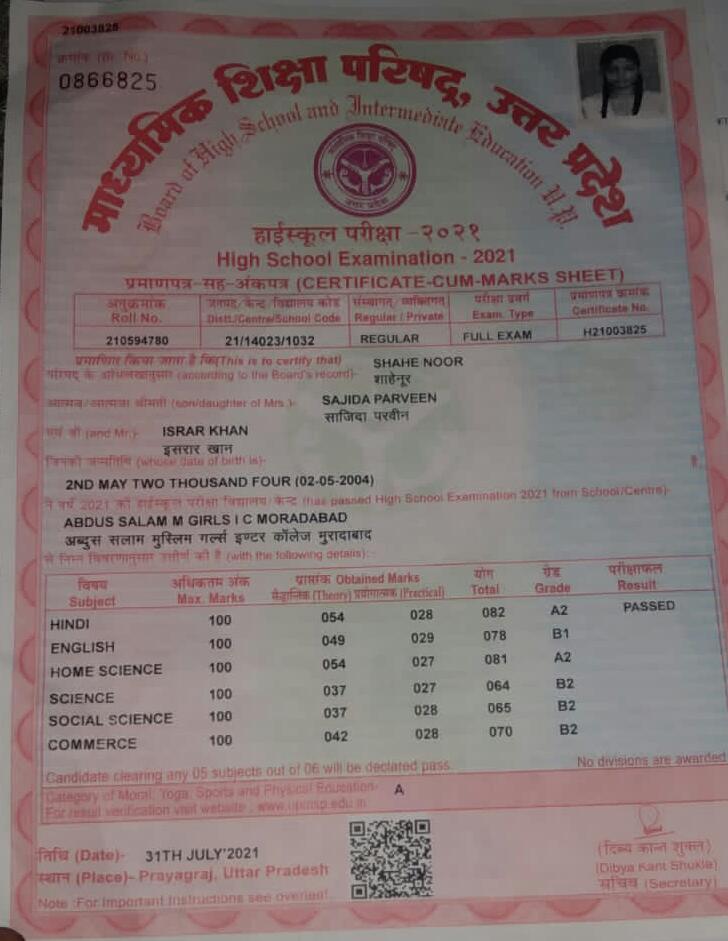 21003825
क्रमांक (Sr. No.)
0866825
माध्यमिक शिक्षा परिषद्, उत्तर प्रदेश
Board of High School and Intermediate Education U.P.
हाईस्कूल परीक्षा -२०२१
High School Examination - 2021
प्रमाणपत्र-सह-अंकपत्र (CERTIFICATE-CUM-MARKS SHEET)
अनुक्रमांक जनपद/केन्द्र/विद्यालय कोड संस्थागत/व्यक्तिगत परीक्षा प्रवर्ग प्रमाणपत्र क्रमांक
Roll No. Distt./Centre/School Code Regular / Private Exam. Type Certificate No.
210594780 21/14023/1032 REGULAR FULL EXAM H21003825
प्रमाणित किया जाता है कि(This is to certify that) SHAHE NOOR
परिषद के अभिलेखानुसार (according to the Board's record)- शाहेनूर
आत्मज/आत्मजा श्रीमती (son/daughter of Mrs.)- SAJIDA PARVEEN
साजिदा परवीन
एवं श्री (and Mr.)- ISRAR KHAN
इसरार खान
जिनकी जन्मतिथि (whose date of birth is)- है,
2ND MAY TWO THOUSAND FOUR (02-05-2004)
ने वर्ष 2021 की हाईस्कूल परीक्षा विद्यालय/केन्द्र (has passed High School Examination 2021 from School/Centre)-
ABDUS SALAM M GIRLS I C MORADABAD
अब्दुस सलाम मुस्लिम गर्ल्स इण्टर कॉलेज मुरादाबाद
से निम्न विवरणानुसार उत्तीर्ण की है (with the following details):
विषय अधिकतम अंक प्राप्तांक Obtained Marks योग ग्रेड परीक्षाफल
Subject Max. Marks सैद्धान्तिक (Theory) प्रयोगात्मक (Practical) Total Grade Result
HINDI 100 054 028 082 A2 PASSED
ENGLISH 100 049 029 078 B1
HOME SCIENCE 100 054 027 081 A2
SCIENCE 100 037 027 064 B2
SOCIAL SCIENCE 100 037 028 065 B2
COMMERCE 100 042 028 070 B2
Candidate clearing any 05 subjects out of 06 will be declared pass. No divisions are awarded
Category of Moral, Yoga, Sports and Physical Education- A
For result verification visit website : www.upmsp.edu.in
तिथि (Date)- 31TH JULY'2021
स्थान (Place)- Prayagraj, Uttar Pradesh
Note :For Important Instructions see overleaf
(दिव्य कान्त शुक्ल)
(Dibya Kant Shukla)
सचिव (Secretary)